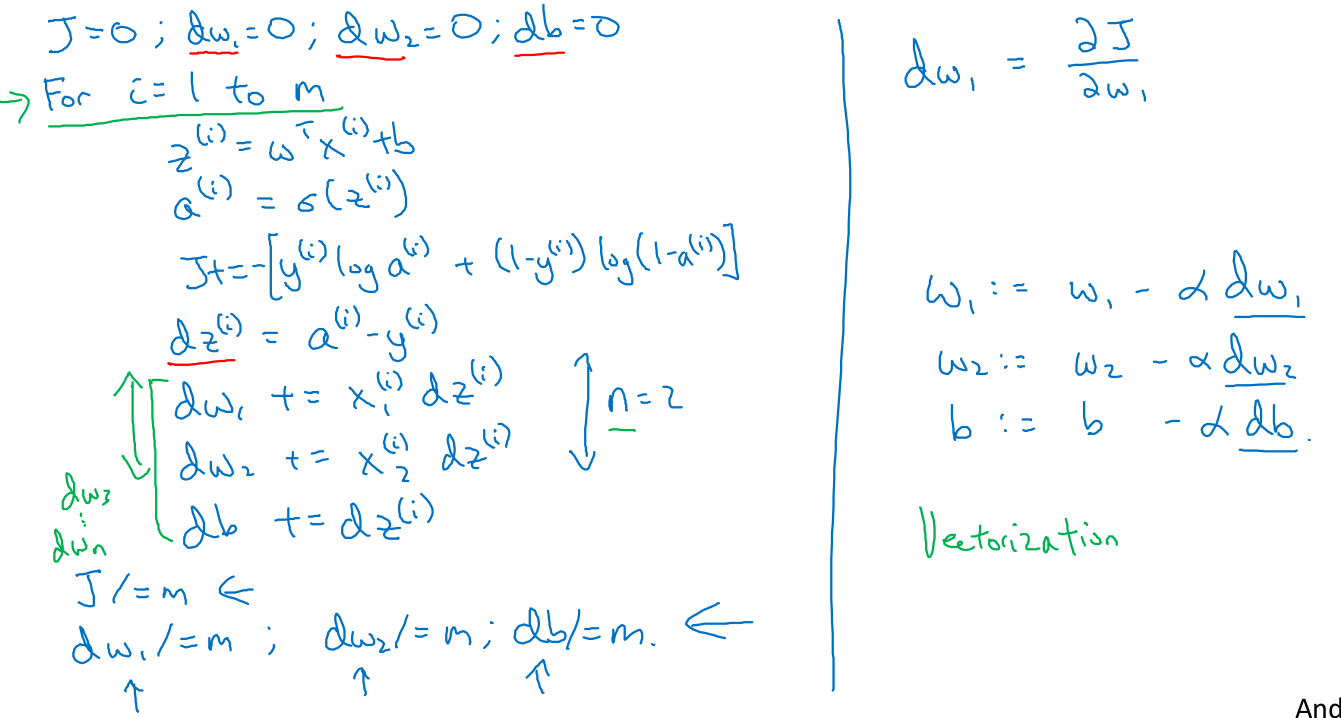 J=0 ; dw₁=0 ; dw₂=0 ; db=0
→ For i = 1 to m
z⁽ⁱ⁾ = wᵀx⁽ⁱ⁾+b
a⁽ⁱ⁾ = σ(z⁽ⁱ⁾)
J+=-[y⁽ⁱ⁾ log a⁽ⁱ⁾ + (1-y⁽ⁱ⁾) log(1-a⁽ⁱ⁾)]
dz⁽ⁱ⁾ = a⁽ⁱ⁾-y⁽ⁱ⁾
dw₁ += x₁⁽ⁱ⁾ dz⁽ⁱ⁾
dw₂ += x₂⁽ⁱ⁾ dz⁽ⁱ⁾
n=2
db += dz⁽ⁱ⁾
dw₃
⋮
dwₙ
J /=m ←
dw₁/=m ; dw₂/=m ; db/=m. ←
dw₁ = ∂J/∂w₁
w₁ := w₁ - α dw₁
w₂ := w₂ - α dw₂
b := b - α db.
Vectorization
And